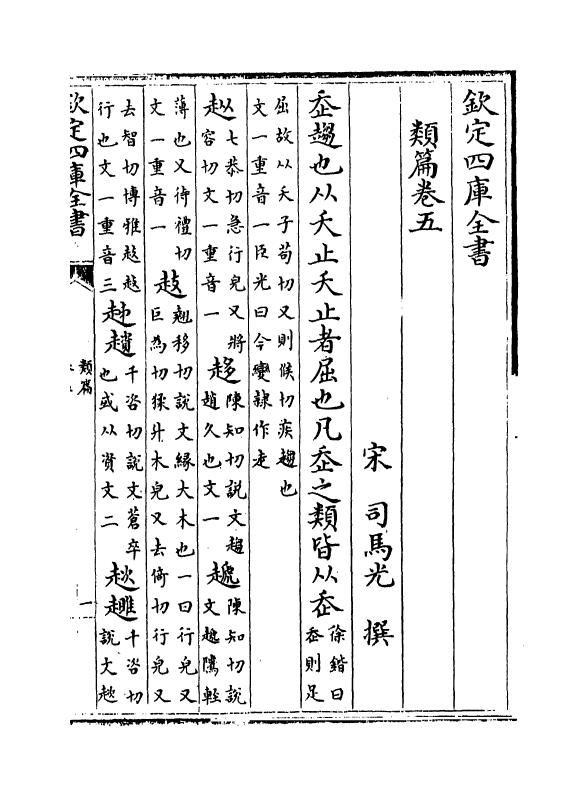 欽定四庫全書
類篇卷五
宋 司馬光 撰
𧺆趨也从夭止夭止者屈也凡𧺆之類皆从𧺆徐鍇曰𧺆則足
屈故从夭子苟切又則候切疾趨也文一重音一臣光曰今變隸作走
七恭切急行皃又將容切文一重音一 趍陳知切說文趍趙久也文一 陳知切說文輕
薄也又待禮切文一重音一 䞚翹移切說文緣大木也一曰行皃又巨為切緣升木皃又去倚切行皃又
去智切博雅䞚䞚行也文一重音三 趀千咨切說文蒼卒也或从資文二 趑千咨切說文趑
欽定四庫全書
類篇
一